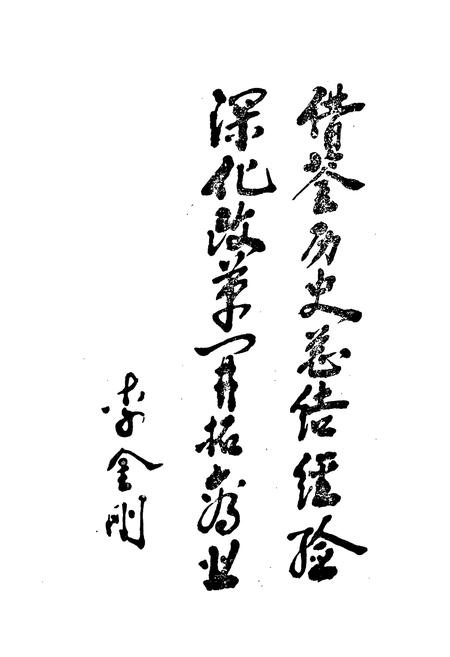 借鉴历史总结经验
深化改革开拓商业
李金刚